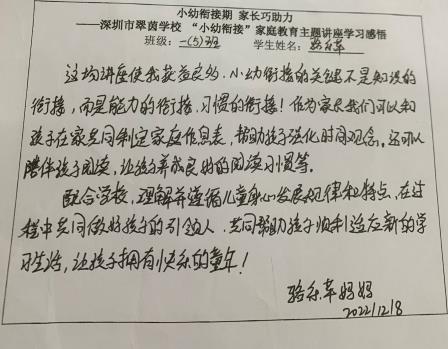 小幼衔接期 家长巧助力
——深圳市翠茵学校 “小幼衔接”家庭教育主题讲座学习感悟
班级：一(5)班 学生姓名：骆乐萃
这场讲座使我获益良多，小幼衔接的关键不是知识的
衔接，而是能力的衔接、习惯的衔接！作为家长我们可以和
孩子在家共同制定家庭作息表，帮助孩子强化时间观念。还可以
陪伴孩子阅读，让孩子养成良好的阅读习惯等。
配合学校，理解并遵循儿童身心发展规律和特点，在过
程中共同做好孩子的引领人，共同帮助孩子顺利适应新的学
习生活，让孩子拥有快乐的童年！
骆乐萃妈妈
2022/12/8